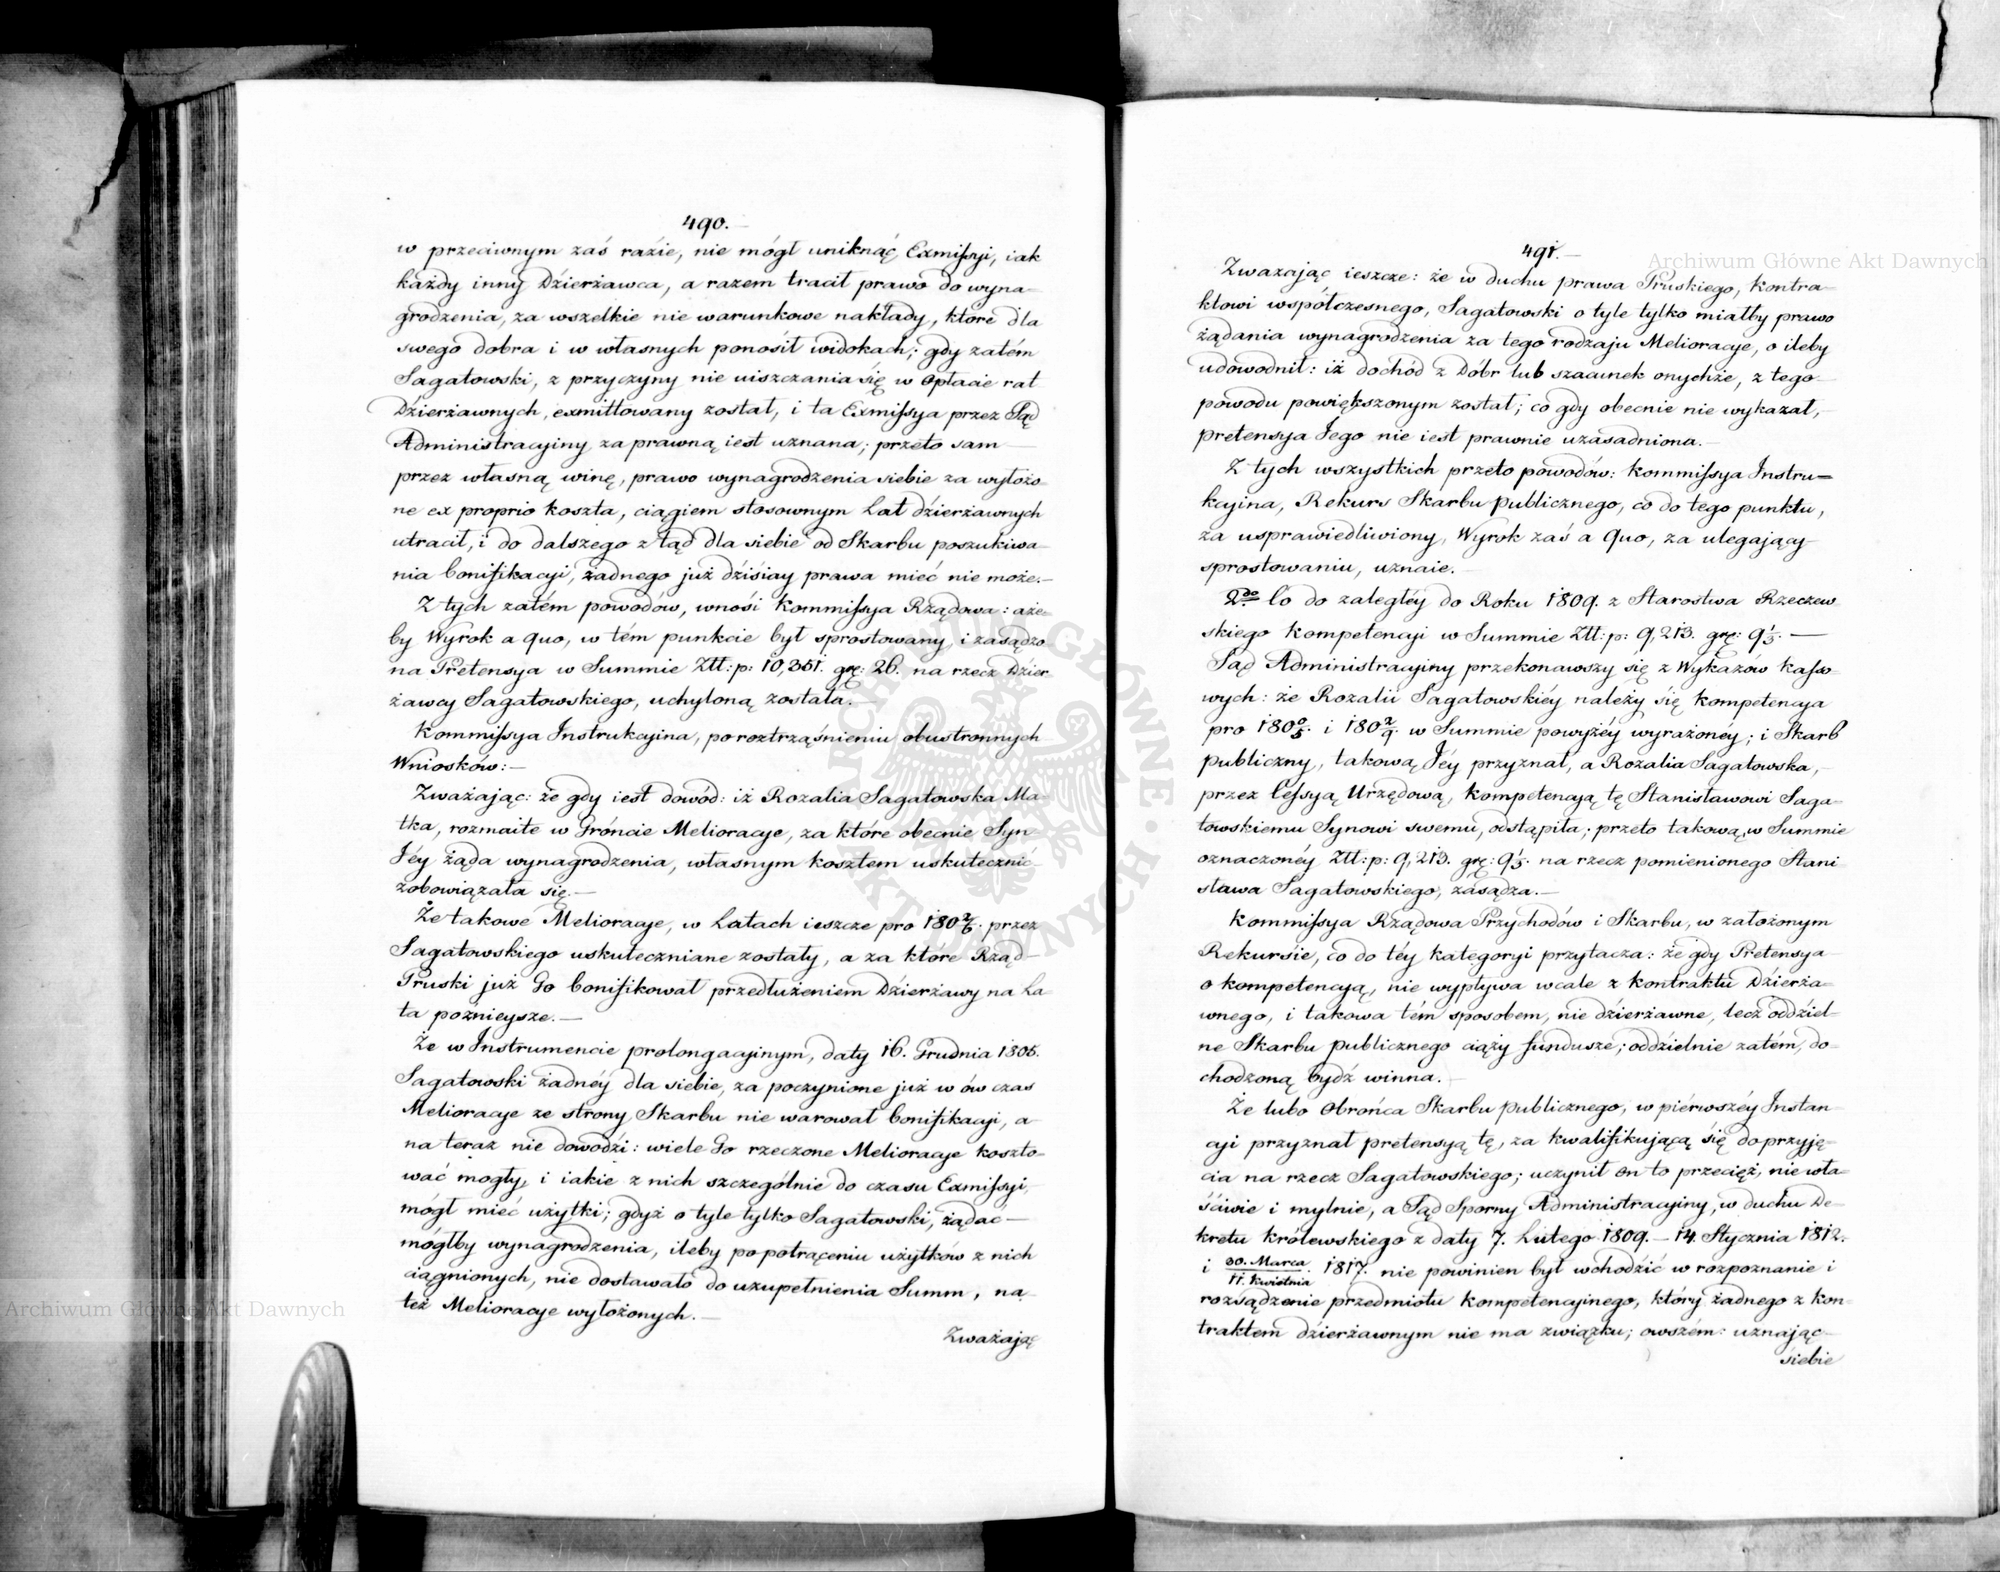 490.
w przeciwnym zaś razie, nie mógł uniknąć Exmissyi, iak
każdy inny Dzierżawca, a razem tracił prawo do wyna-
grodzenia, za wszelkie nie warunkowe nakłady, które dla
swego dobra i w własnych ponosił widokach; gdy zatém
Sagatowski, z przyczyny nie uiszczania się w opłacie rat
Dzierżawnych, exmittowany został, i ta Exmissya przez Sąd
Administracyiny za prawną iest uznana; przeto sam —
przez własną winę, prawo wynagrodzenia siebie za wyłożo-
ne ex proprio koszta, ciągiem stosownym Lat dzierżawnych
utracił, i do dalszego z tąd dla siebie od Skarbu poszukiwa-
nia bonifikacyi, żadnego już dzisiay prawa mieć nie może.—
Z tych zatém powodów, wnosi Kommissya Rządowa: aże-
by Wyrok a quo, w tém punkcie był sprostowany, i zasądzo
na Pretensya w Summie Złł: p: 10,351. gr: 26. na rzecz Dzier-
żawcy Sagatowskiego, uchyloną została.—
Kommissya Instrukcyina, po roztrząśnieniu obustronnych
Wniosków:—
Zważając: że gdy iest dowód: iż Rozalia Sagatowska Ma-
tka, rozmaite w Gróncie Melioracye, za które obecnie Syn
Jéy żąda wynagrodzenia, własnym kosztem uskutecznić
zobowiązała się.—
Że takowe Melioracye, w Latach ieszcze pro 180 2/6. przez
Sagatowskiego uskuteczniane zostały, a za które Rząd
Pruski już Go bonifikował przedłużeniem Dzierżawy na La-
ta poźnieysze.—
Że w Instrumencie prolongacyinym, daty 16. Grudnia 1805.
Sagatowski żadnéy dla siebie, za poczynione już w ów czas
Melioracye ze strony Skarbu nie warował bonifikacyi, a
na teraz nie dowodzi: wiele Go rzeczone Melioracye koszto-
wać mogły, i iakie z nich szczególnie do czasu Exmissyi,
mógł mieć użytki; gdyż o tyle tylko Sagatowski, żądać —
mógłby wynagrodzenia, ileby po potrąceniu użytków z nich
ciągnionych, nie dostawało do uzupełnienia Summ, na
też Melioracye wyłożonych.—
Zważając
491.
Zważając ieszcze: że w duchu prawa Pruskiego, kontra-
ktowi współczesnego, Sagatowski o tyle tylko miałby prawo
żądania wynagrodzenia za tego rodzaju Melioracye, o ileby
udowodnił: iż dochód z Dóbr lub szacunek onychże, z tego
powodu powiększonym został; co gdy obecnie nie wykazał,
pretensya Jego nie iest prawnie uzasadniona.—
Z tych wszystkich przeto powodów: Kommissya Instru-
kcyina, Rekurs Skarbu publicznego, co do tego punktu,
za usprawiedliwiony, Wyrok zaś a quo, za ulegający
sprostowaniu, uznaie.—
2do Co do zaległéy do Roku 1809. z Starostwa Rzeczew
skiego kompetencyi w Summie Złł: p: 9,213. gr: 9 1/3. —
Sąd Administracyiny przekonawszy się z Wykazow kasso-
wych: że Rozalii Sagatowskiéy należy się kompetencya
pro 180 0/5. i 180 2/9. w Summie powyżéy wyrażonéy; i Skarb
publiczny, takową Jéy przyznał, a Rozalia Sagatowska,—
przez Cessyą Urzędową, kompetencyą tę Stanisławowi Saga-
towskiemu Synowi swemu, odstąpiła; przeto takową, w Summie
oznaczonéy Złł: p: 9,213. gr: 9 1/3. na rzecz pomienionego Stani
sława Sagatowskiego, zasądza.—
Kommissya Rządowa Przychodów i Skarbu, w założonym
Rekursie, co do téy kategoryi przytacza: że gdy Pretensya
o kompetencyą, nie wypływa wcale z kontraktu Dzierża-
wnego, i takowa tém sposobem, nie dzierżawne, lecz oddziel-
ne Skarbu publicznego ciąży fundusze; oddzielnie zatém, do-
chodzoną bydź winna.—
Że lubo Obrońca Skarbu publicznego, w piérwszéy Instan-
cyi przyznał pretensyą tę, za kwalifikującą się do przyję-
cia na rzecz Sagatowskiego; uczynił on to przecięż, nie wła-
ściwie i mylnie, a Sąd Sporny Administracyiny, w duchu De-
kretu Królewskiego z daty 7. Lutego 1809. — 14. Stycznia 1812.
i 30. Marca / 11. Kwietnia 1817. nie powinien był wchodzić w rozpoznanie i
rozsądzenie przedmiotu kompetencyinego, który żadnego z kon-
traktem dzierżawnym nie ma związku; owszém: uznając
siebie
Archiwum Główne Akt Dawnych
Archiwum Główne Akt Dawnych
ARCHIWUM GŁÓWNE AKT DAWNYCH